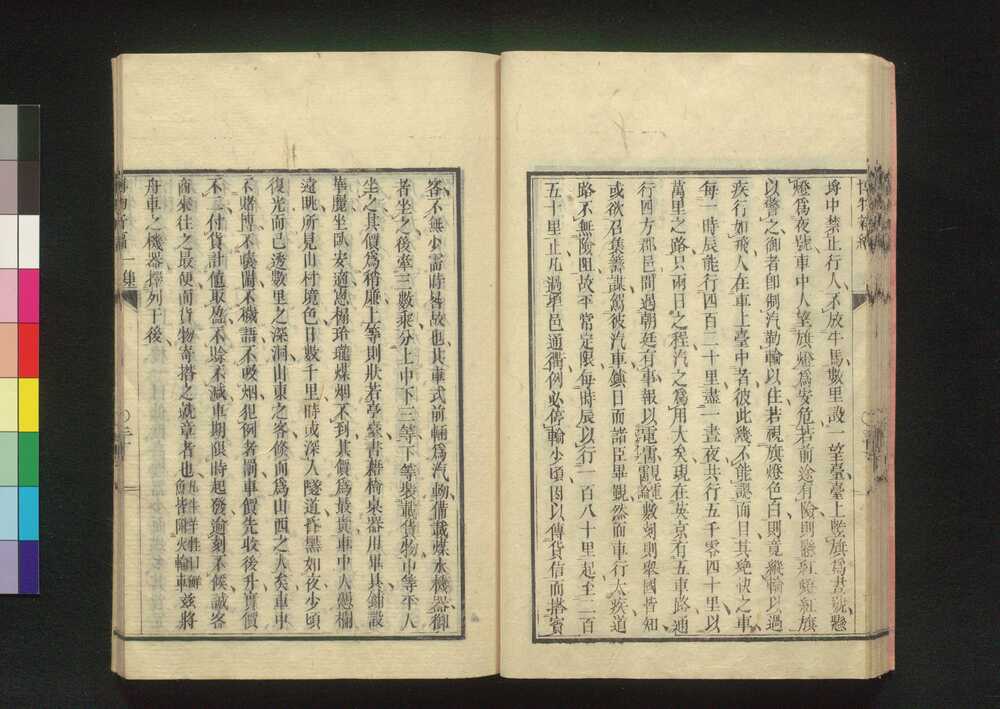 埒中禁止行人不放牛馬數里設一望臺臺上豎旗為晝號懸
燈為夜號車中人望旗燈為安危若前途有險則懸紅燈紅旗
以警之御者即制汽勒輪以住若視旗燈色白則竟縱輪以過
疾行如飛人在車上臺中者彼此幾不能認面目其絶快之車
每一時辰能行四百二十里盡一晝夜共行五千零四十里以
萬里之路只兩日之程汽之為用大矣現在英京有五車路通
行四方郡邑間過朝廷有事報以電雷論數刻則舉國皆知
或欲召集籌謀駕彼汽車鎮日而諸臣畢覲然而車行太疾道
路不無險阻故平常定限每時辰以行一百八十里起至二百
五十里止凡過埠邑通衢例必停輪少頃因以傳貨信而搭賓
客不無小需時耳故也其車式前輛為汽物備載煤水機器御
者坐之後牽三數乘分上中下三等下等裝載貨物中等平人
坐之其價為稍廉上等則狀若亭臺書楼椅桌器用畢具鋪設
華麗坐臥安適窓櫺玲瓏煤烟不到其價為最貴車中人憑欄
遠眺所見山村境色日數千里時或深入隧道昏黑如夜少頃
復光而已透數里之深洞山東之客倏而為山西之人矣車中
不賭博不喧鬧不穢語不吸烟犯例者罰車價先收後升實價
不二付貨計値取盈不賒不減車期限時起發逾刻不候誠客
商來往之最便而貨物寄搭之就章者也凡牛羊牲口鮮魚皆附火輪車茲將
舟車之機器擇列于後